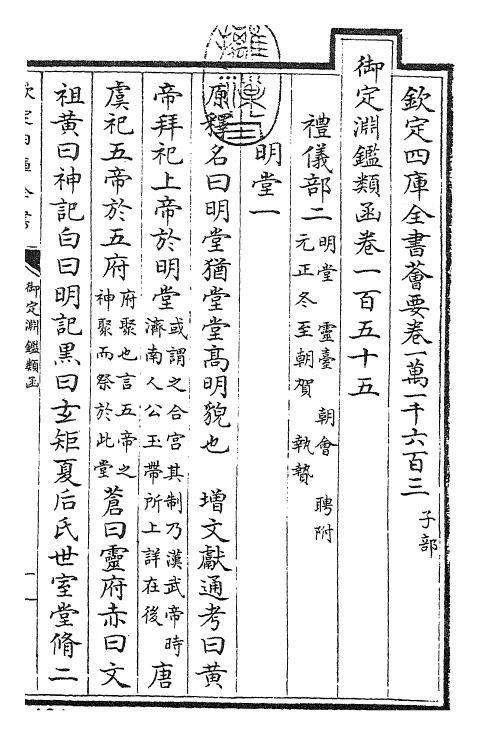 欽定四庫全書薈要卷一萬一千六百三 子部
御定淵鑑類函卷一百五十五
禮儀部二 明堂 靈臺 朝會 聘附
元正冬至朝賀 執贄
明堂一
原釋名曰明堂猶堂堂高明貌也 增文獻通考曰黄
帝拜祀上帝於明堂 或謂之合宫其制乃漢武帝時
濟南人公玉帶所上詳在後 唐
虞祀五帝於五府 府聚也言五帝之
神聚而祭於此堂 蒼曰靈府赤曰文
祖黄曰神記白曰明記黑曰玄矩夏后氏世室堂脩二
御定淵鑑類函
一